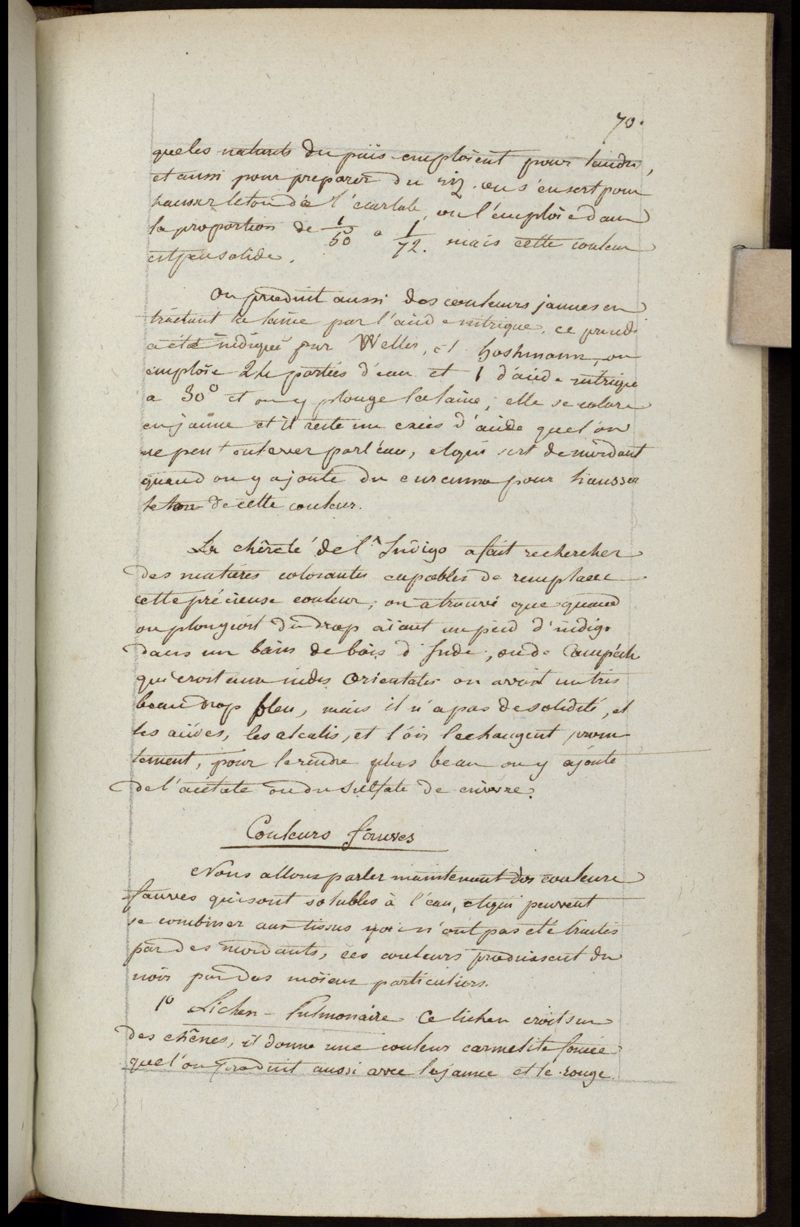 70.
que les naturels du païs emploient pour teindre,
et aussi pour preparer du riz. on s'en sert pour
hausser le ton de l'écarlate, on l'emploie dans
la proportion de 1/50 a 1/72. mais cette couleur
est peu solide.
On produit aussi des couleurs jaunes en
traitant la laine par l'acide nitrique. ce procédé
a été indiqué par Welles, et hoshmann, on
emploie 24 parties d'eau et 1 d'acide nitrique
a 30° et on y plonge la laine; elle se colore
en jaune et il reste un excès d'acide que l'on
ne peut enlever par l'eau, et qui sert de mordant
quand on y ajoute du curcuma pour hausser
le ton de cette couleur.
La chèreté de l'Indigo a fait rechercher
des matières colorantes capables de remplacer
cette précieuse couleur; on a trouvé que quand
on plongeoit du drap aïant un pied d'indigo
dans un bain de bois d'Inde, ou de Campêche
qui croit aux indes Orientales on avoit un très
beau drap bleu, mais il n'a pas de solidité, et
les acides, les alcalis, et l'air le changent prom-
tement, pour le rendre plus beau on y ajoute
de l'acétate ou du sulfate de cuivre.
Couleurs fauves
Nous allons parler maintenant des couleurs
fauves qui sont solubles à l'eau, et qui peuvent
se combiner aux tissus qui n'ont pas été traités
par des mordants, ces couleurs produisent du
noir par des moïens particuliers.
1° Lichen-Pulmonaire Ce lichen croit sur
des chênes, il donne une couleur carmelite foncée
que l'on produit aussi avec le jaune et le rouge.